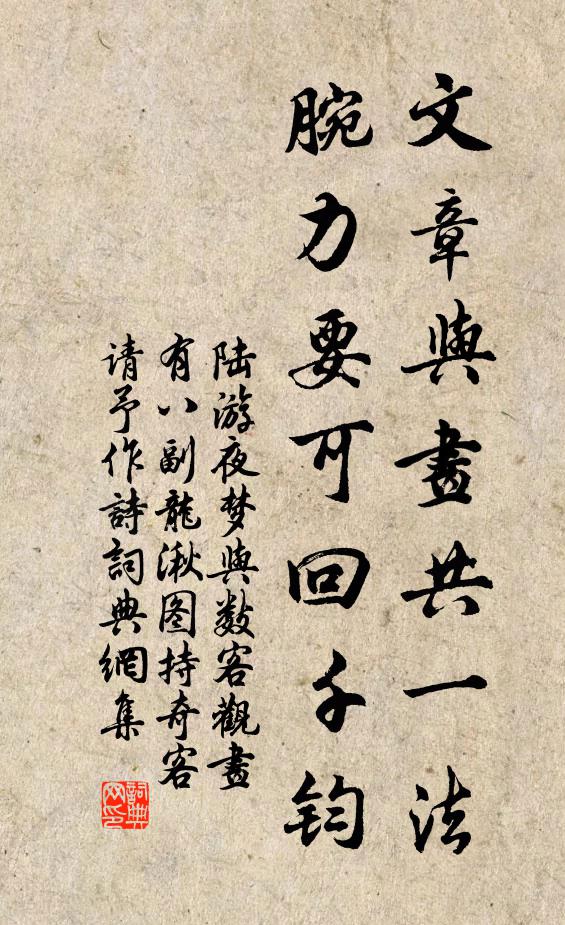 文章與畫共一法
腕力要可回千鈞
陆游夜梦與数客觀畫
有八副龍湫图持奇客
请予作詩詞典網集
詞典网印